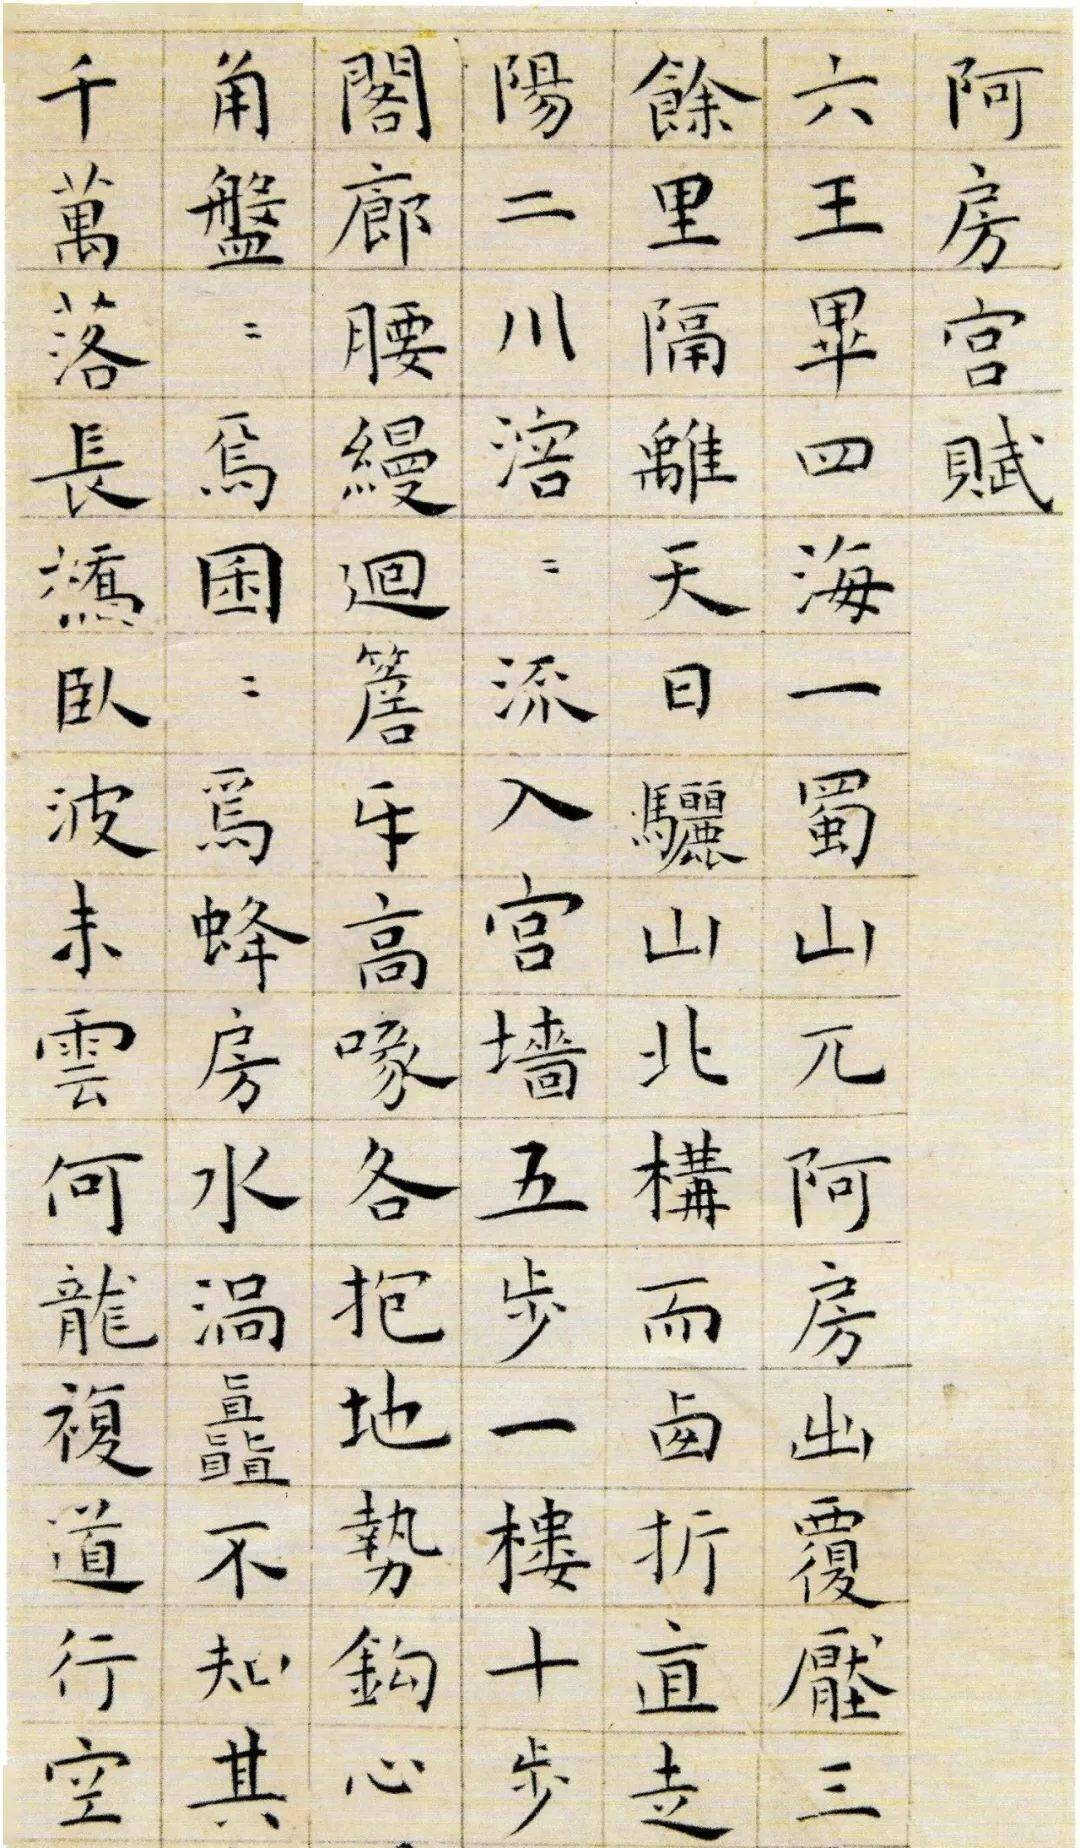 阿房宮賦
六王畢四海一蜀山兀阿房出覆壓三
餘里隔離天日驪山北構而西折直走
陽二川溶〻流入宮墻五步一樓十步
閣廊腰縵迴簷牙高啄各抱地勢鈎心
角盤〻焉囷〻焉蜂房水渦矗不知其
千萬落長橋臥波未雲何龍複道行空